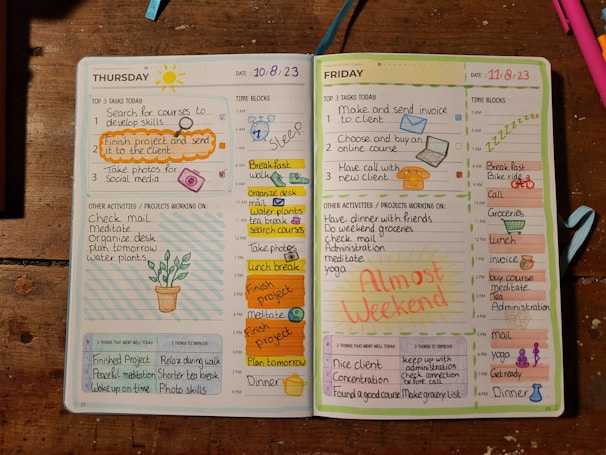 THURSDAY
DATE: 10/8/23
TOP 3 TASKS TODAY
1 Search for courses to
develop skills
2 Finish project and send
it to the client
3 Take photos for
social media
OTHER ACTIVITIES / PROJECTS WORKING ON:
Check mail
Meditate
Organize desk
plan tomorrow
Water plants
3 THINGS THAT WENT WELL TODAY
3 THINGS TO IMPROVE
Finished Project
Relax during walk
Peaceful meditation
Shorter tea break
Wake up on time
Photo skills
TIME BLOCKS
Sleep
Breakfast
walk
Organize desk
mail
Water plants
tea break
search courses
Take photos
Lunch break
Finish
project
Meditate
Finish
project
Plan tomorrow
Dinner
FRIDAY
DATE: 11/8/23
TOP 3 TASKS TODAY
1 Make and send invoice
to client
2 Choose and buy an
online course
3 Have call with
new client
OTHER ACTIVITIES / PROJECTS WORKING ON:
Have dinner with friends
Do weekend groceries
check mail
Administration
meditate
yoga
Almost
Weekend
3 THINGS THAT WENT WELL TODAY
3 THINGS TO IMPROVE
Nice client
keep up with
administration
Concentration
Check connection
before call
Found a good course
Make grocery list
TIME BLOCKS
zzzzzzzz
Breakfast
Bike ride
Call
Groceries
Lunch
invoice
buy course
meditate
Tea
Administration
mail
yoga
Get ready
Dinner